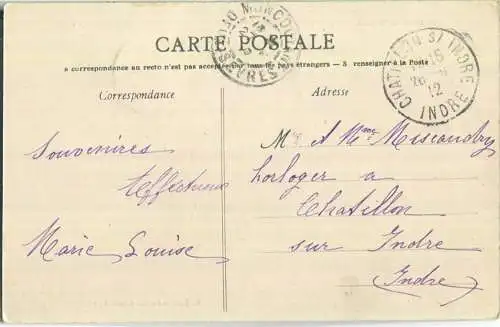 CARTE POSTALE
a correspondance au recto n'est pas acceptée par tous les pays étrangers — S renseigner à la Poste
Correspondance
Adresse
CHATILLON S/ INDRE
15
26
12
INDRE
Souvenires
Affectueux
Marie Louise
Mr et Mme Miscandry
horloger a
Chatillon
sur Indre
(Indre)